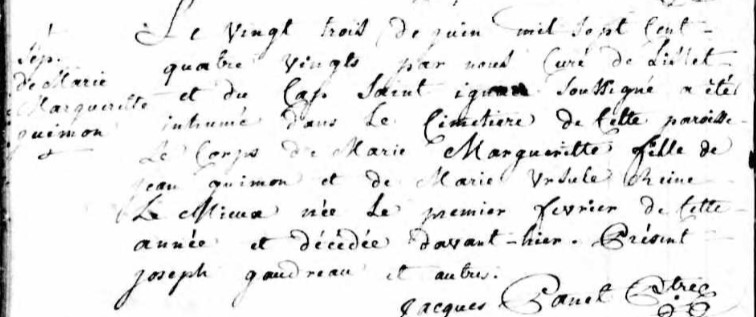 Sép.
de Marie
Margueritte
guimon
Le vingt trois de juin mil sept cent
quatre vingts par nous Curé de L'islet
et du Cap Saint ignace soussigné a été
inhumé dans Le Cimetiere de Cette paroisse
Le Corps de Marie Marguerittte fille de
jean guimon et de Marie Ursule Reine
Le Mieux née Le premier fevrier de Cette
année et décédée davant-hier. Présent
joseph gaudreau et autres.
Jacques Panet Ptre